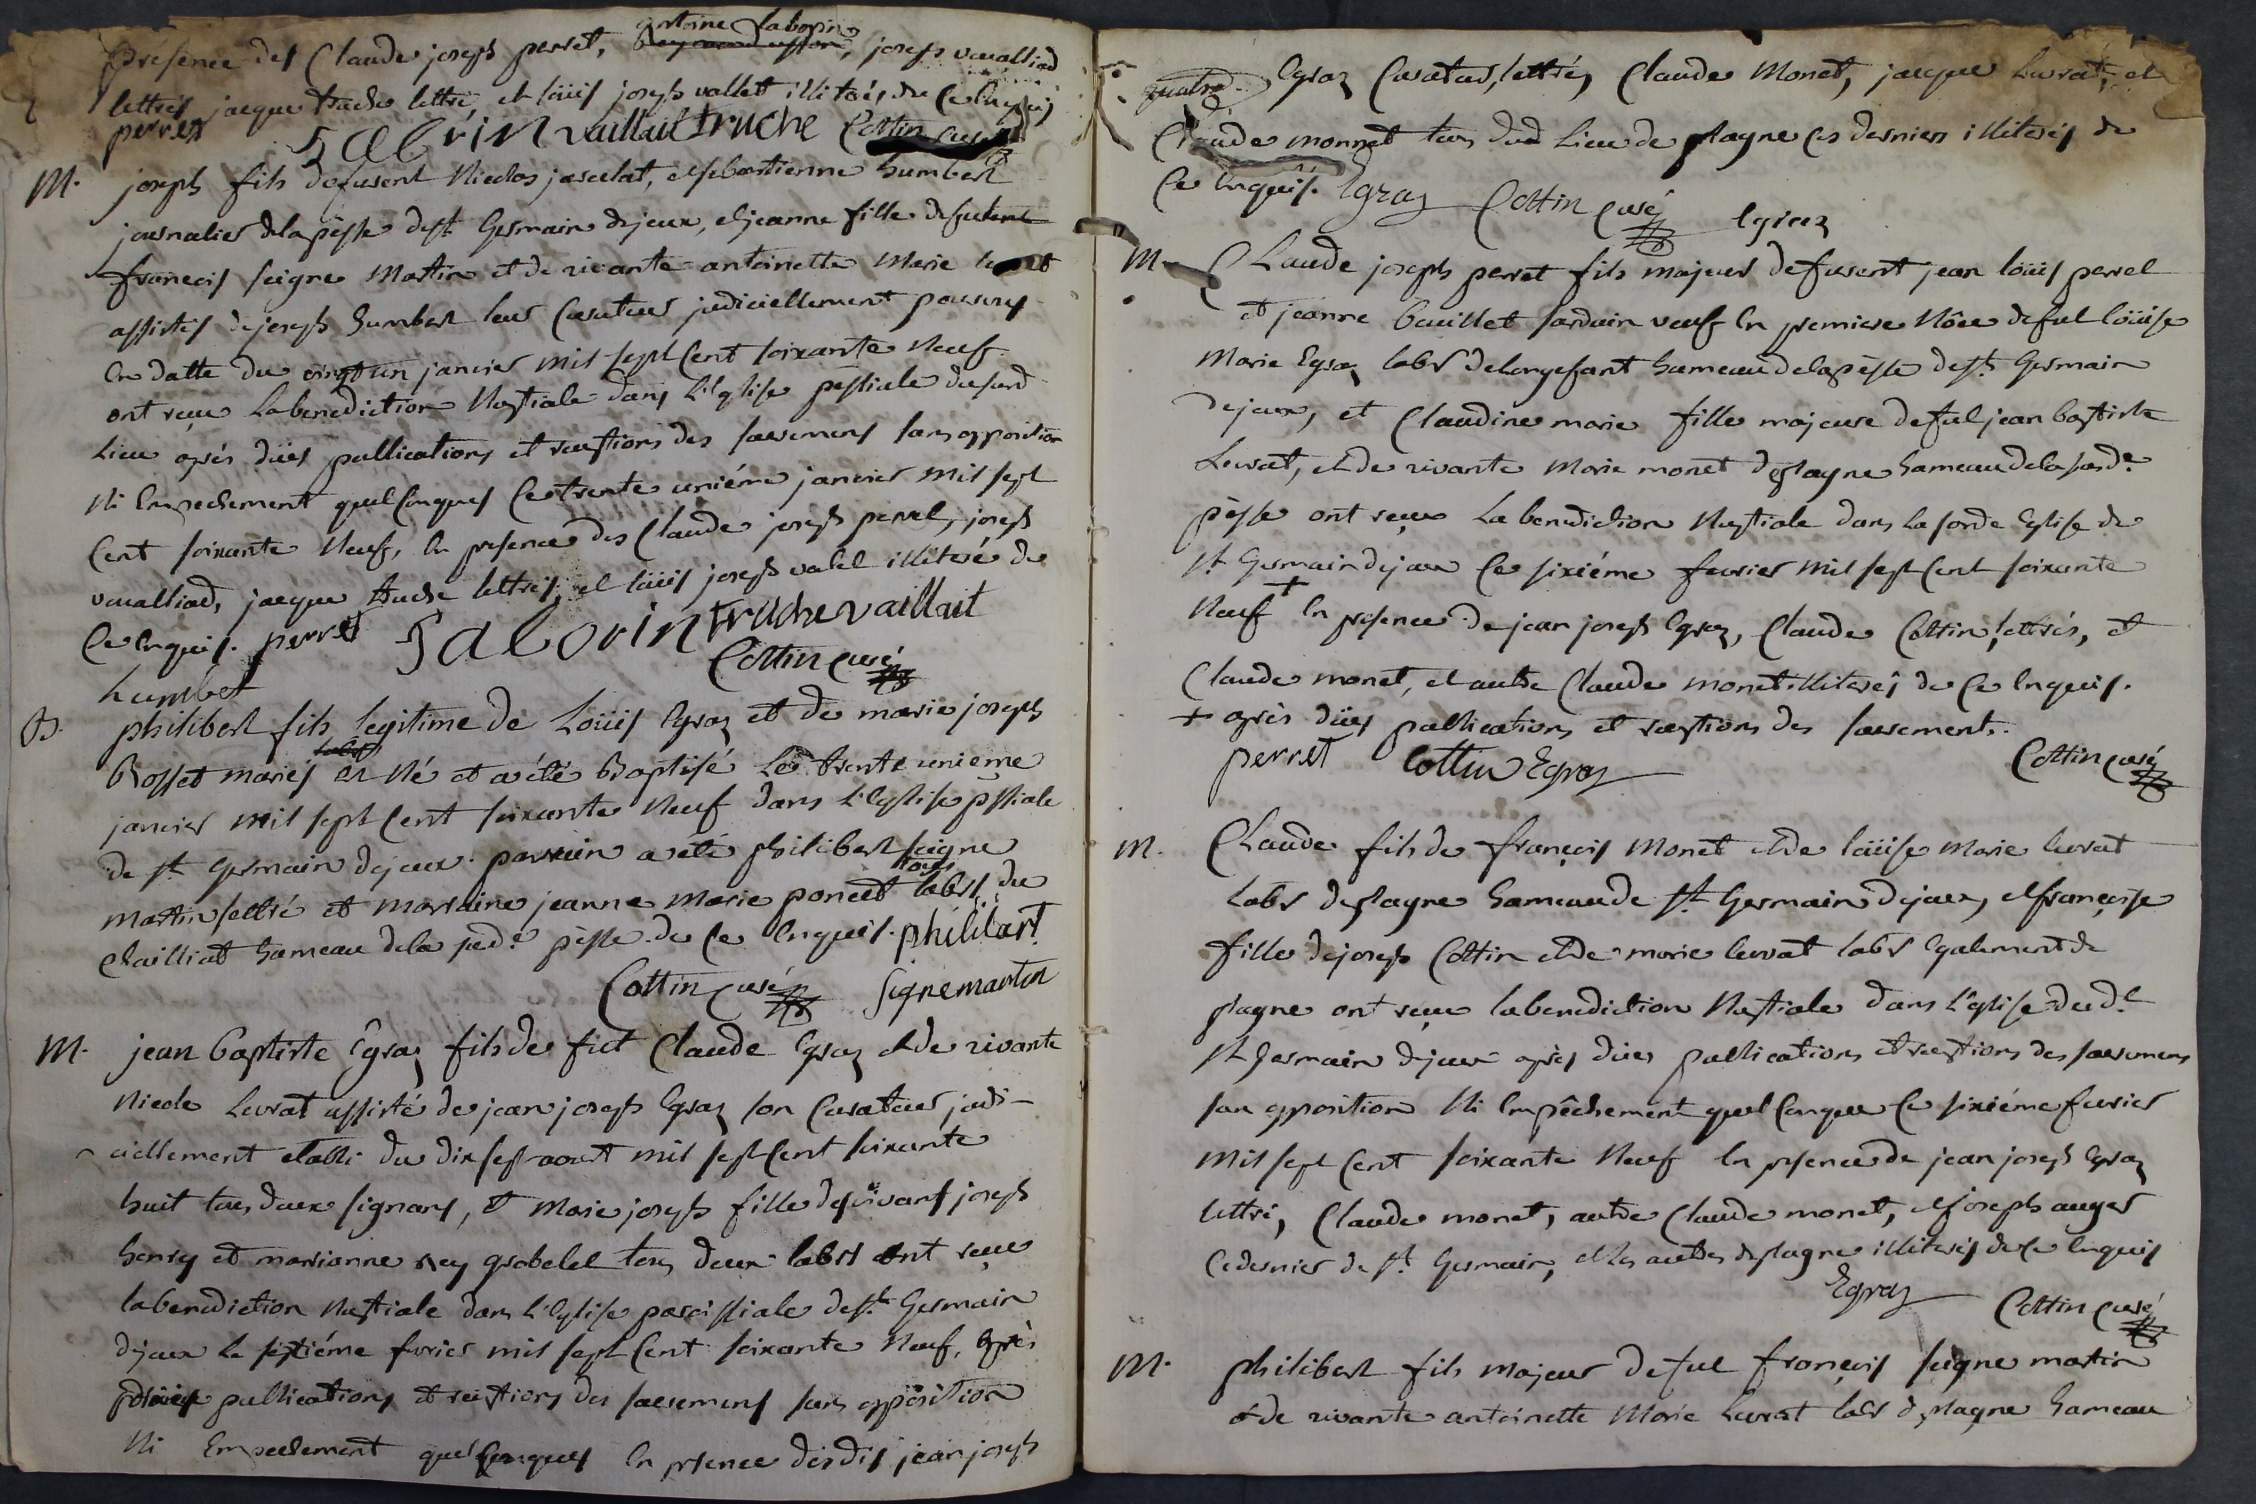 présence des Claude joseph perret, antoine fabovrin, joseph vuailliad
lettrés jacque truche lettré, et loüis joseph vallett illiterés de ce Enquis
perret fabvrin vaillait truche Cottin curé
M. joseph fils defusent Nicolas joseclat, et sebastienne humbert
journalier de la pèsse de st. Germain dejoux, et jeanne fille defusent
françois seigne Martin et de vivante antoinette Marie levrat
assistés de joseph humbert leur Curateur judiciellement pourvus
En datte du vingt un janvier mil sept Cent soixante Neuf
ont reçeu La benediction Nuptiale dans L'Eglise pèssiale du susd
Lieu après düës publications et reeptions des sacremens sans opposition
Ni Empechement quelConques Ce trente unième janvier mil sept
Cent soixante Neuf, En presence des Claude joseph perret, joseph
vuailliad, jacque truche lettrés, et loüis joseph valet illiteré de
Ce Enquis. perret fabovrin truche vaillait
Cottin curé
humbet
B. philibert fils legitime de Loüis Egraz et de marie joseph
Bosset mariés labrs est Né et a été Baptisé Le trente unième
janvier mil sept Cent soixante Neuf dans L'Eglise pssiale
de st. Germain dejoux. parrain a été philibert seigne
martin lettré et marraine jeanne Marie poncet tous labrs, du
Chailliat hameau de la sud.e pèsse de ce Enquis. philibart
Cottin curé signemartin
M. jean Baptiste Egraz fils de fut Claude Egraz et de vivante
Nicole Levrat assisté de jean joseph Egraz son Curateur judi-
ciellement etabli du dix sept aout mil sept Cent soixante
huit tous deux signans, et Marie joseph fille des vivans joseph
henry et marianne rey grobelet tous deux labrs ont reçeu
la benediction Nuptiale dans L'Eglise paroissiale de st. Germain
dejoux le septiéme fevrier mil sept Cent soixante Neuf, après
düës publications et reeptions des sacremens sans opposition
Ni Empechement quelConques En presence desdis jean joseph
Egraz Curateur, lettrés, Claude Monet, jacque Levrat, et
Claude monnet tous dud Lieu de plagne Ces derniers illiterés de
Ce Enquis. Egraz Cottin curé Egraz
M. Claude joseph perret fils majeur defusent jean loüis perret
et jeanne Bouillet sarduin veuf En premiere Nôce de fut loüise
Marie Egraz labr de longefant hameau de la pèsse de st. Germain
dejoux, et Claudine marie fille majeure de fut jean baptiste
Levrat, et de vivante Marie monet de plagne hameau de la susd.e
pèsse ont reçeu La benediction Nuptiale dans la susde Eglise de
st. Germain dejoux Ce sixiéme fevrier mil sept Cent soixante
Neuf + En presence de jean joseph Egraz, Claude Cottin lettrés, et
Claude monet, et autre Claude monet illiterés de Ce Enquis.
+ après düës publications et reeptions des sacremens.
perret Cottin Egraz Cottin curé
M. Claude fils de françois Monet et de loüise Marie levrat
labr de plagne hameau de st. Germain dejoux, et françoise
fille de joseph Cottin et de marie levrat labr Egalement de
plagne ont reçeu la benediction Nuptiale dans L'Eglise dud.t
st. Germain dejoux après düës publications et reeptions des sacremens
sans opposition Ni Empêchement quelConque Ce sixiéme fevrier
mil sept Cent soixante Neuf En presence de jean joseph Egraz
lettré, Claude monet, autre Claude monet, et joseph auger
Ce dernier de st. Germain, et les autres de plagne illiterés de Ce Enquis
Egraz Cottin curé
M. philibert fils majeur de fut françois seigne martin
et de vivante antoinette Marie Levrat labr de plagne hameau